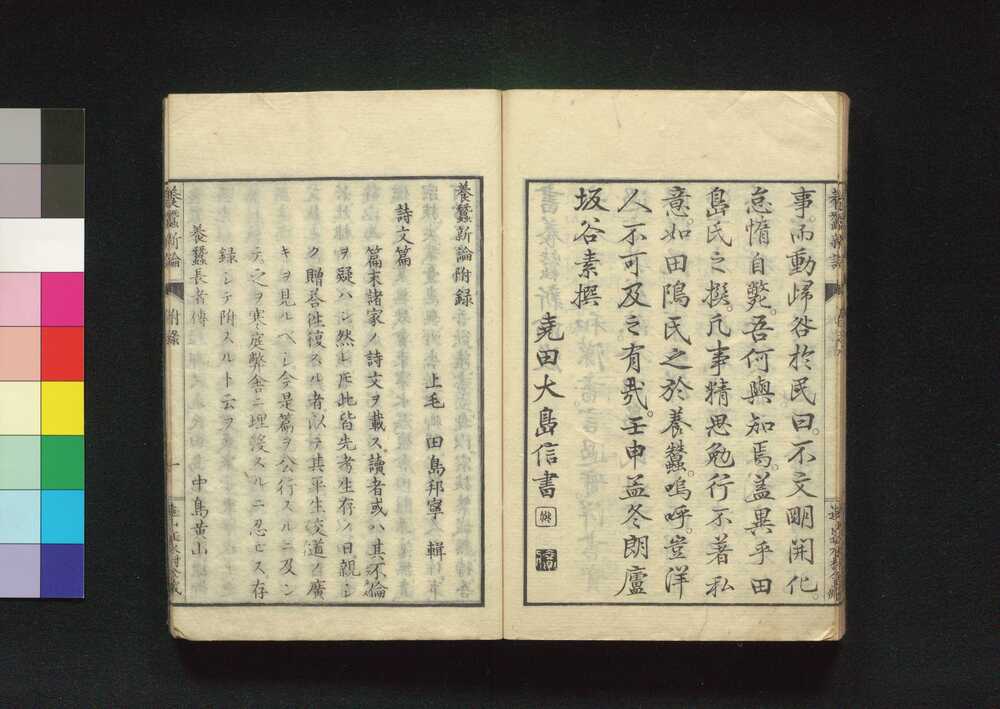 事。而動歸咎於民曰。不文明開化。
怠惰自斃。吾何與知焉。蓋異乎田
島氏之撰。凡事精思勉行不著私
意。如田隝氏之於養蠶。嗚呼。豈洋
人不可及之有哉。壬申孟冬朗廬
坂谷素撰
堯田大島信書
養蠶新論附録
上毛 田島邦寧 輯
詩文篇
篇末諸家ノ詩文ヲ載ス讀者或ハ其不倫
ヲ疑ハン然レ𪜈此皆先考生存ノ日親シ
ク贈答往復スル者以テ其平生交道ノ廣
キヲ見ルベシ今是篇ヲ公行スルニ及ン
テ之ヲ寒庭弊舎ニ埋没スルニ忍ヒス存
録シテ附スルト云フ
養蠶長者傳
中島黄山
養蠶新論
附録
一